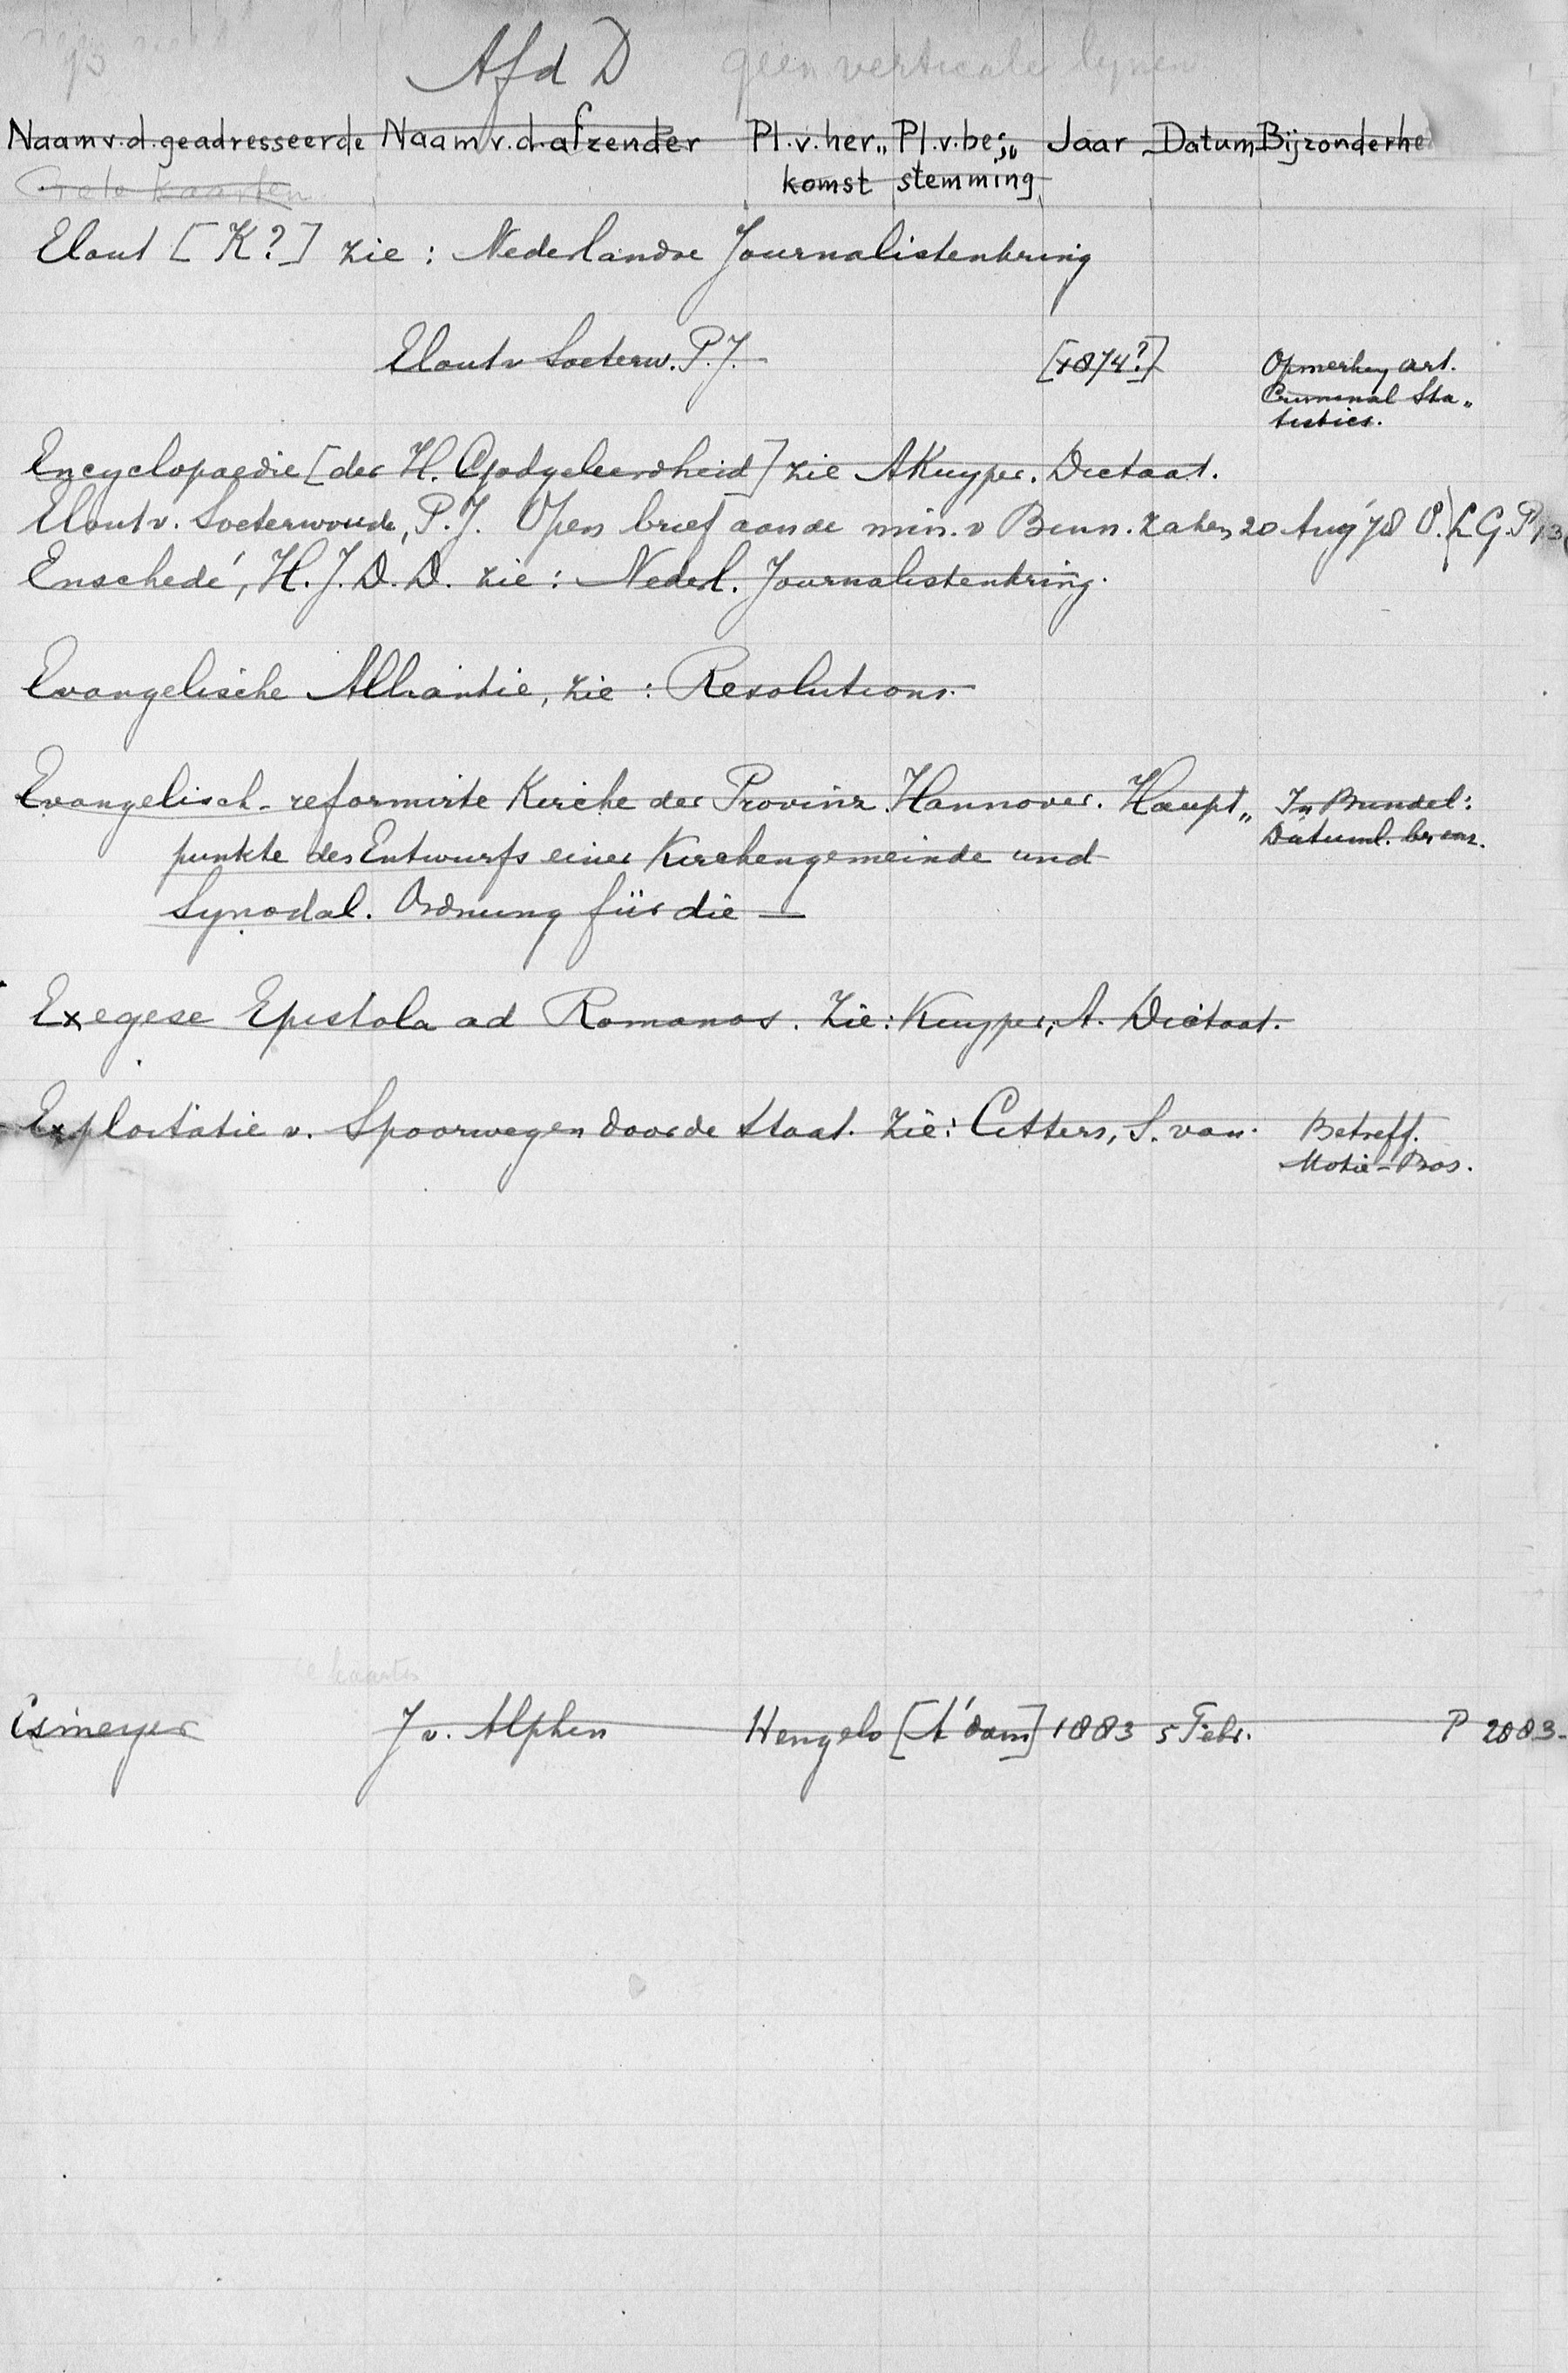 Afd D geen verticale lynen
Naam v.d. geadresseerde Naam v.d. afzender Pl. v. her„ Pl. v. be„ Jaar Datum Bijzonderhe
Grete Kaarten komst stemming
Elout [K?] zie: Nederlandse Journalistenkring
Elout v Soeterw. P.J. [1874?] Opmerking art.
Criminal Sta„
tistics.
Encyclopaedie [der H. Godgeleerdheid] zie A Kuyper. Dictaat.
Elout v. Soeterwoude, P.J. Open brief aan de min. v Binn. Zaken 20 Aug '78 P. L G. P
Enschedé, H.J.D.D. zie: Nederl. Journalistenkring.
Evangelische Alliantie, zie: Resolutions.
Evangelisch-reformirte Kirche der Provinz Hannover. Haupt„ In Bundel:
punkte des Entwurfs einer Kirchengemeinde und Datuml.
Synodal. Ordnung für die —
Exegese Epistola ad Romanos. Zie: Kuyper, A. Dictaat.
Exploitatie v. Spoorwegen door de Staat. Zie: Citters, S. van. Betreff.
Motie-Bos.
kaarten
Esmeyer J v. Alphen Hengelo [A'dam] 1883 5 Febr. P 2883-